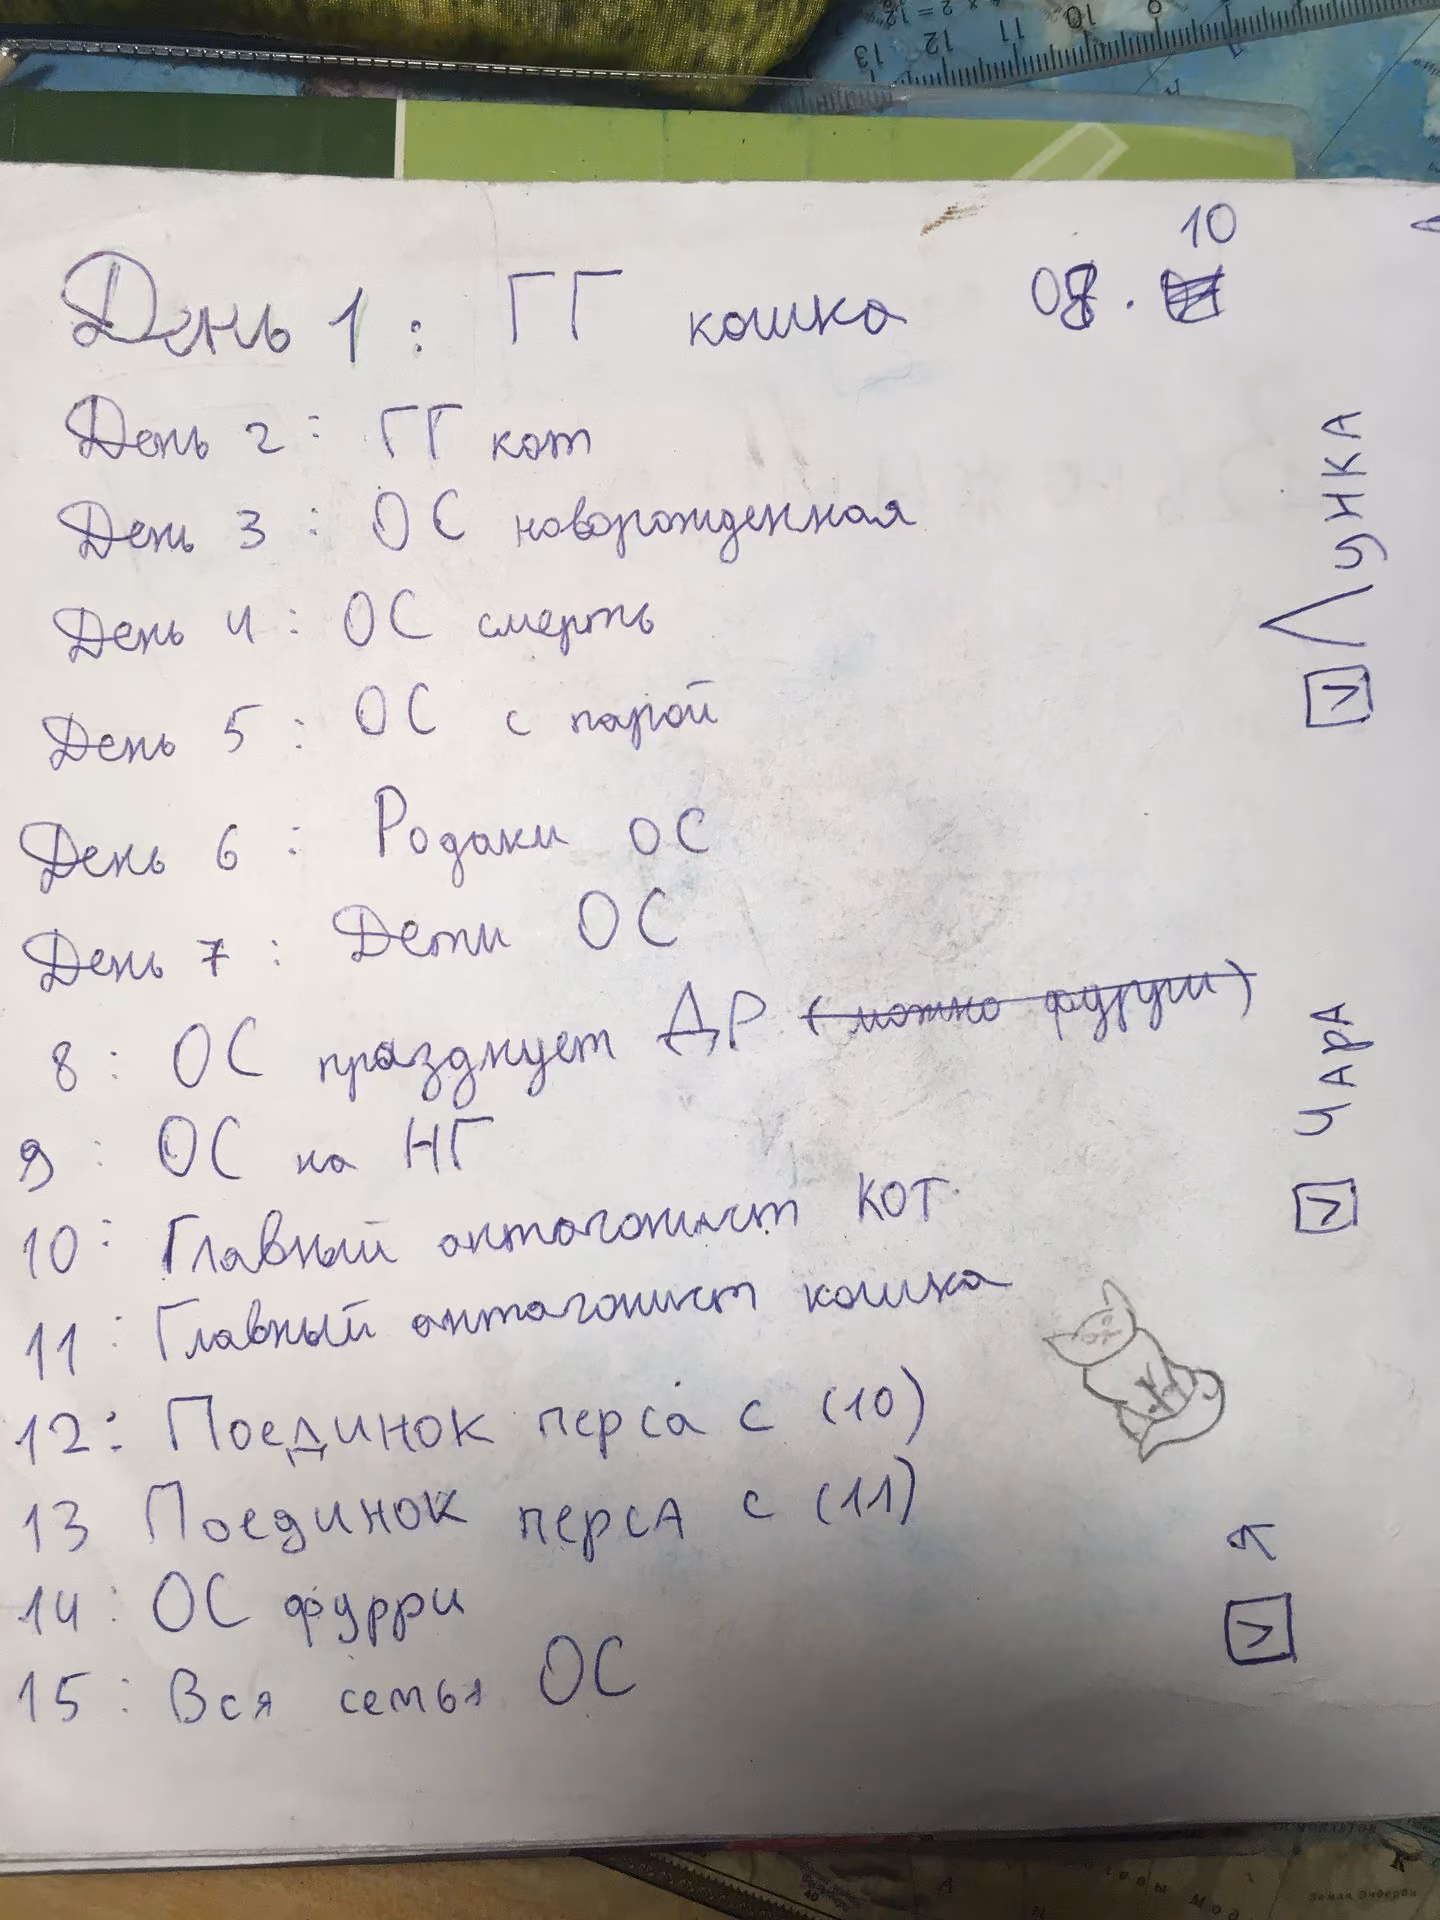 День 1: ГГ кошка 08.
10
День 2: ГГ кот
День 3: ОС новорожденная
День 4: ОС смерть
День 5: ОС с парой
День 6: Родаки ОС
День 7: Дети ОС
8: ОС празднует ДР (можно фурри)
9: ОС на НГ
10: Главный антагонист КОТ
11: Главный антагонист кошка
12: Поединок перса с (10)
13 Поединок персА с (11)
14: ОС фурри
15: Вся семья ОС
Лунка
ЧАРА
13 12 11 10 9